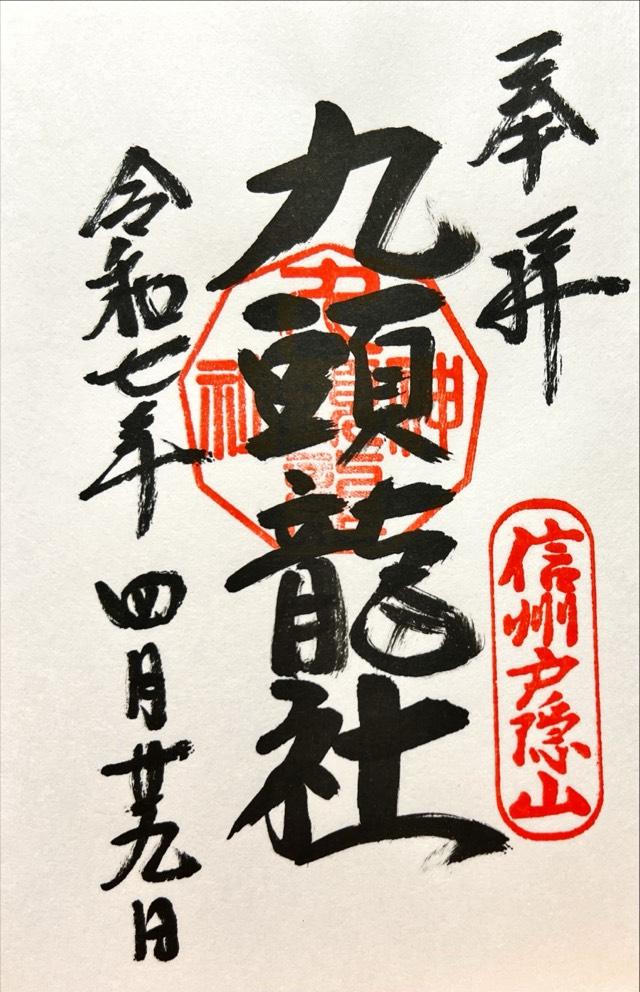 奉拝
信州戸隠山
九頭龍社
令和七年四月廿九日